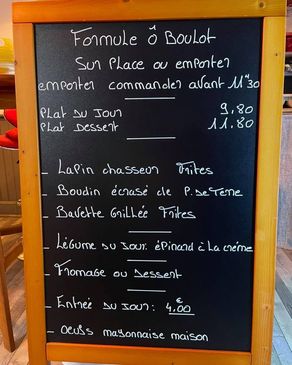 Formule Ô Boulot
Sur Place ou emporter
emporter commander avant 11"30
Plat du Jour 9.80
Plat Dessert 11.80
_ Lapin chasseur Frites
_ Boudin écrasé de P. de Terre
_ Bavette Grillée Frites
_ Légume du Jour: épinard à la crème
_ Fromage ou Dessert
_ Entrée du Jour: 4.00€
_ oeufs mayonnaise maison